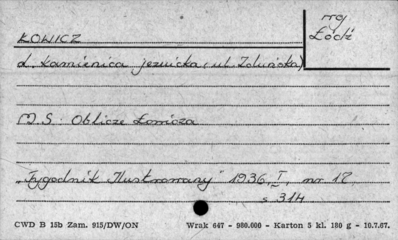 woj
Łódź
ŁOWICZ
d. kamienica jezuicka (ul. Zduńska)
M.S. Oblicze Łowicza
"Tygodnik Ilustrowany" 1936, I, nr 17,
s 314
CWD B 15b Zam. 915/DW/ON Wrak 647 - 980.000 - Karton 5 kl. 180 g - 10.7.67.